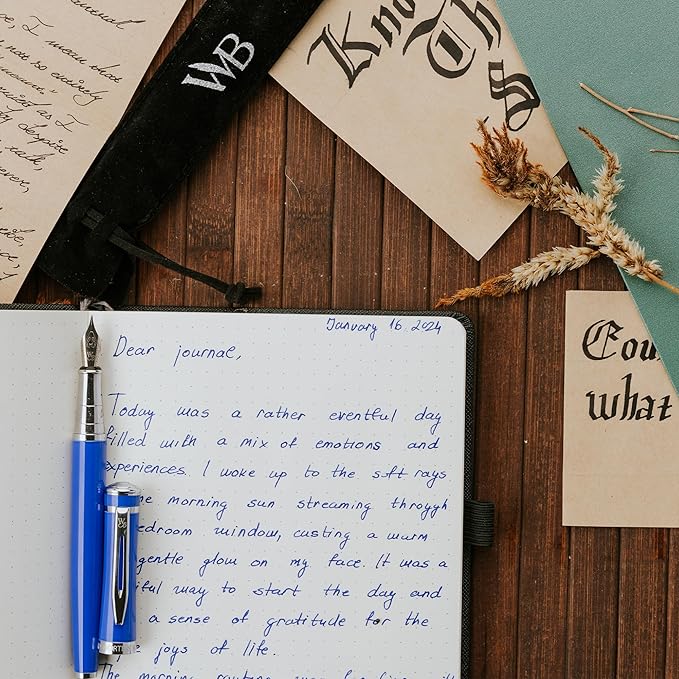 I mean that
not so entirely
as I
despite
talk,
WB
Kno
Th
S
January 16 2024
Dear journal,
Today was a rather eventful day
filled with a mix of emotions and
experiences. I woke up to the soft rays
morning sun streaming throygh
edroom window, casting a warm
gentle glow on my face. It was a
iful way to start the day and
a sense of gratitude for the
joys of life.
The morning routine was
Cou
what